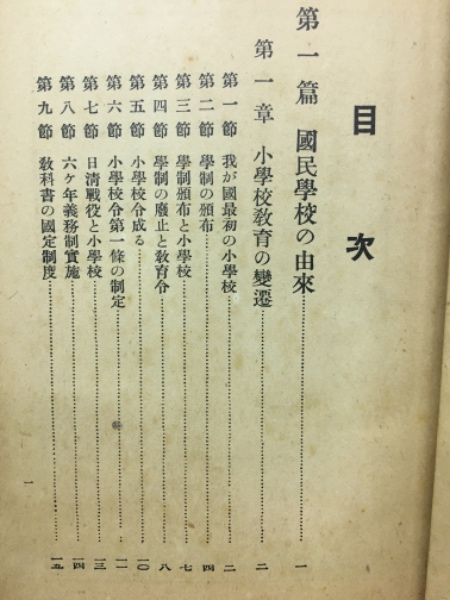 目次
第一篇 國民學校の由來……一
第一章 小學校敎育の變遷……二
第一節 我が國最初の小學校……二
第二節 學制の頒布……四
第三節 學制頒布と小學校……七
第四節 學制の廢止と敎育令……八
第五節 小學校令成る……一〇
第六節 小學校令第一條の制定……一一
第七節 日淸戰役と小學校……一三
第八節 六ケ年義務制實施……一四
第九節 敎科書の國定制度……一五
一